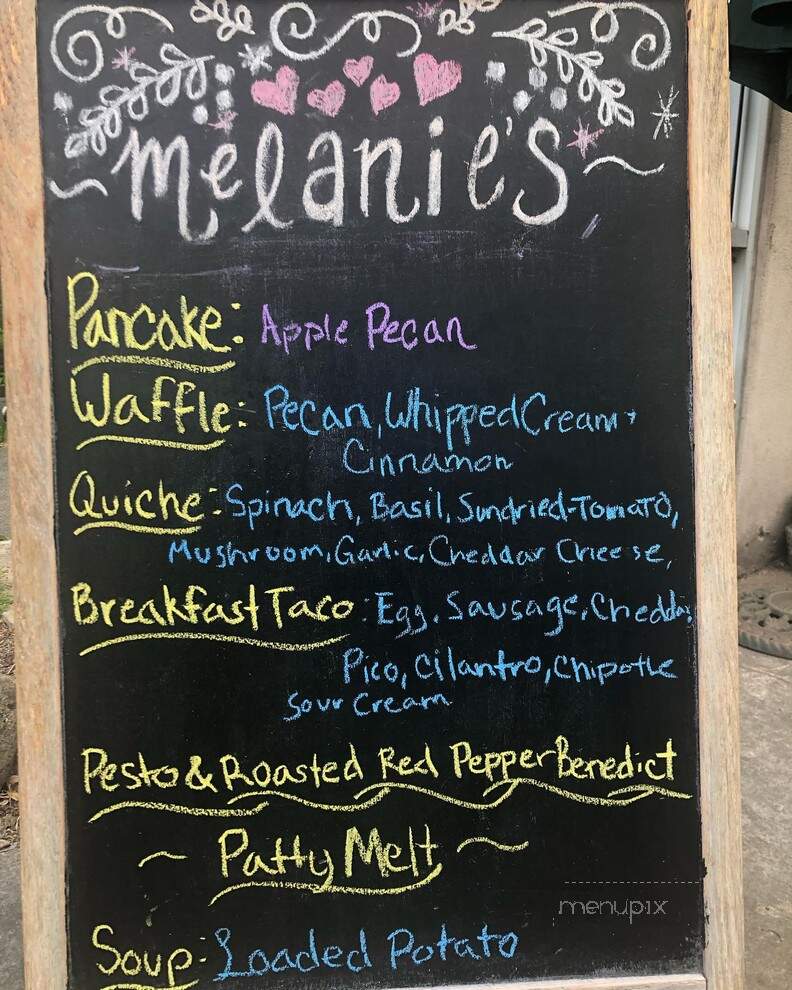 Melanie's
Pancake: Apple Pecan
Waffle: Pecan, Whipped Cream +
Cinnamon
Quiche: Spinach, Basil, Sundried-Tomato,
Mushroom, Garlic, Cheddar Cheese,
Breakfast Taco: Egg, Sausage, Cheddar,
Pico, Cilantro, Chipotle
Sour Cream
Pesto & Roasted Red Pepper Benedict
~ Patty Melt ~
Soup: Loaded Potato
menupix